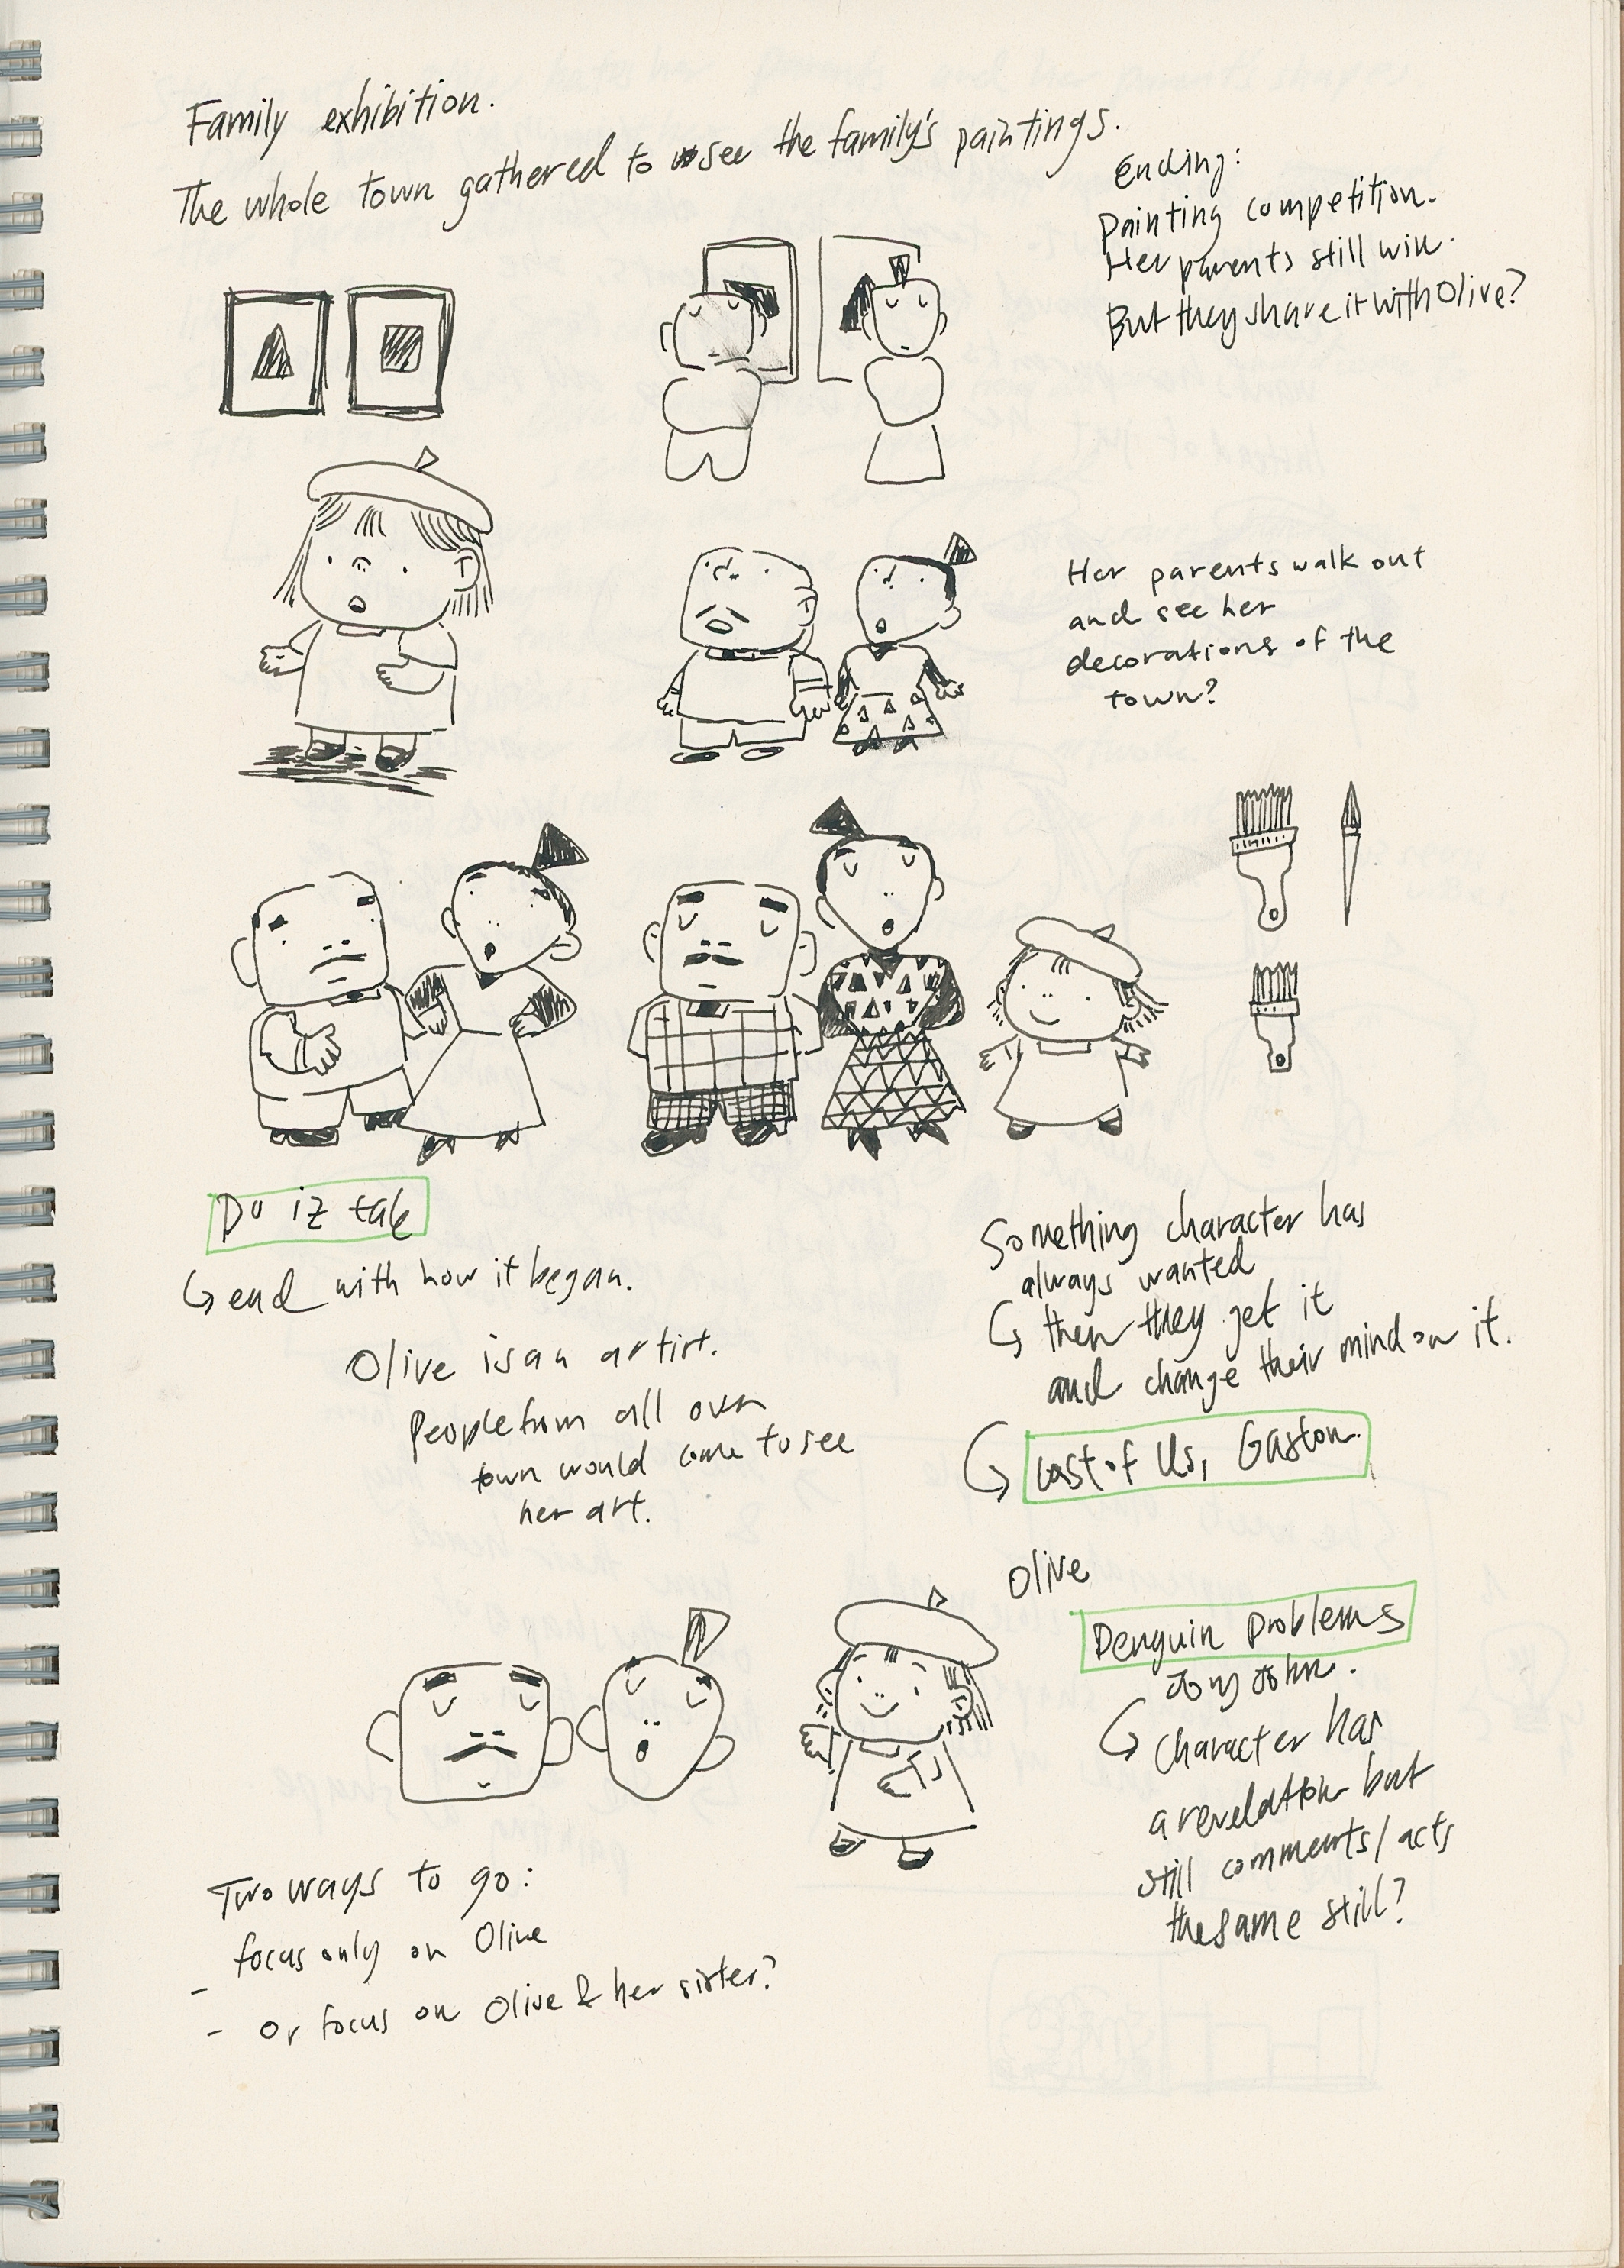 Family exhibition.
The whole town gathered to see the family's paintings.
Ending:
Painting competition.
Her parents still win.
But they share it with Olive?
Her parents walk out
and see her
decorations of the
town?
Du iz tak
end with how it began.
Olive is an artist.
People from all over
town would come to see
her art.
Something character has
always wanted
then they get it
and change their mind on it.
Last of Us, Gaston.
Olive
Penguin Problems
Jory John.
Character has
a revelation but
still comments/acts
the same still?
Two ways to go:
focus only on Olive
-
- or focus on Olive & her sister?